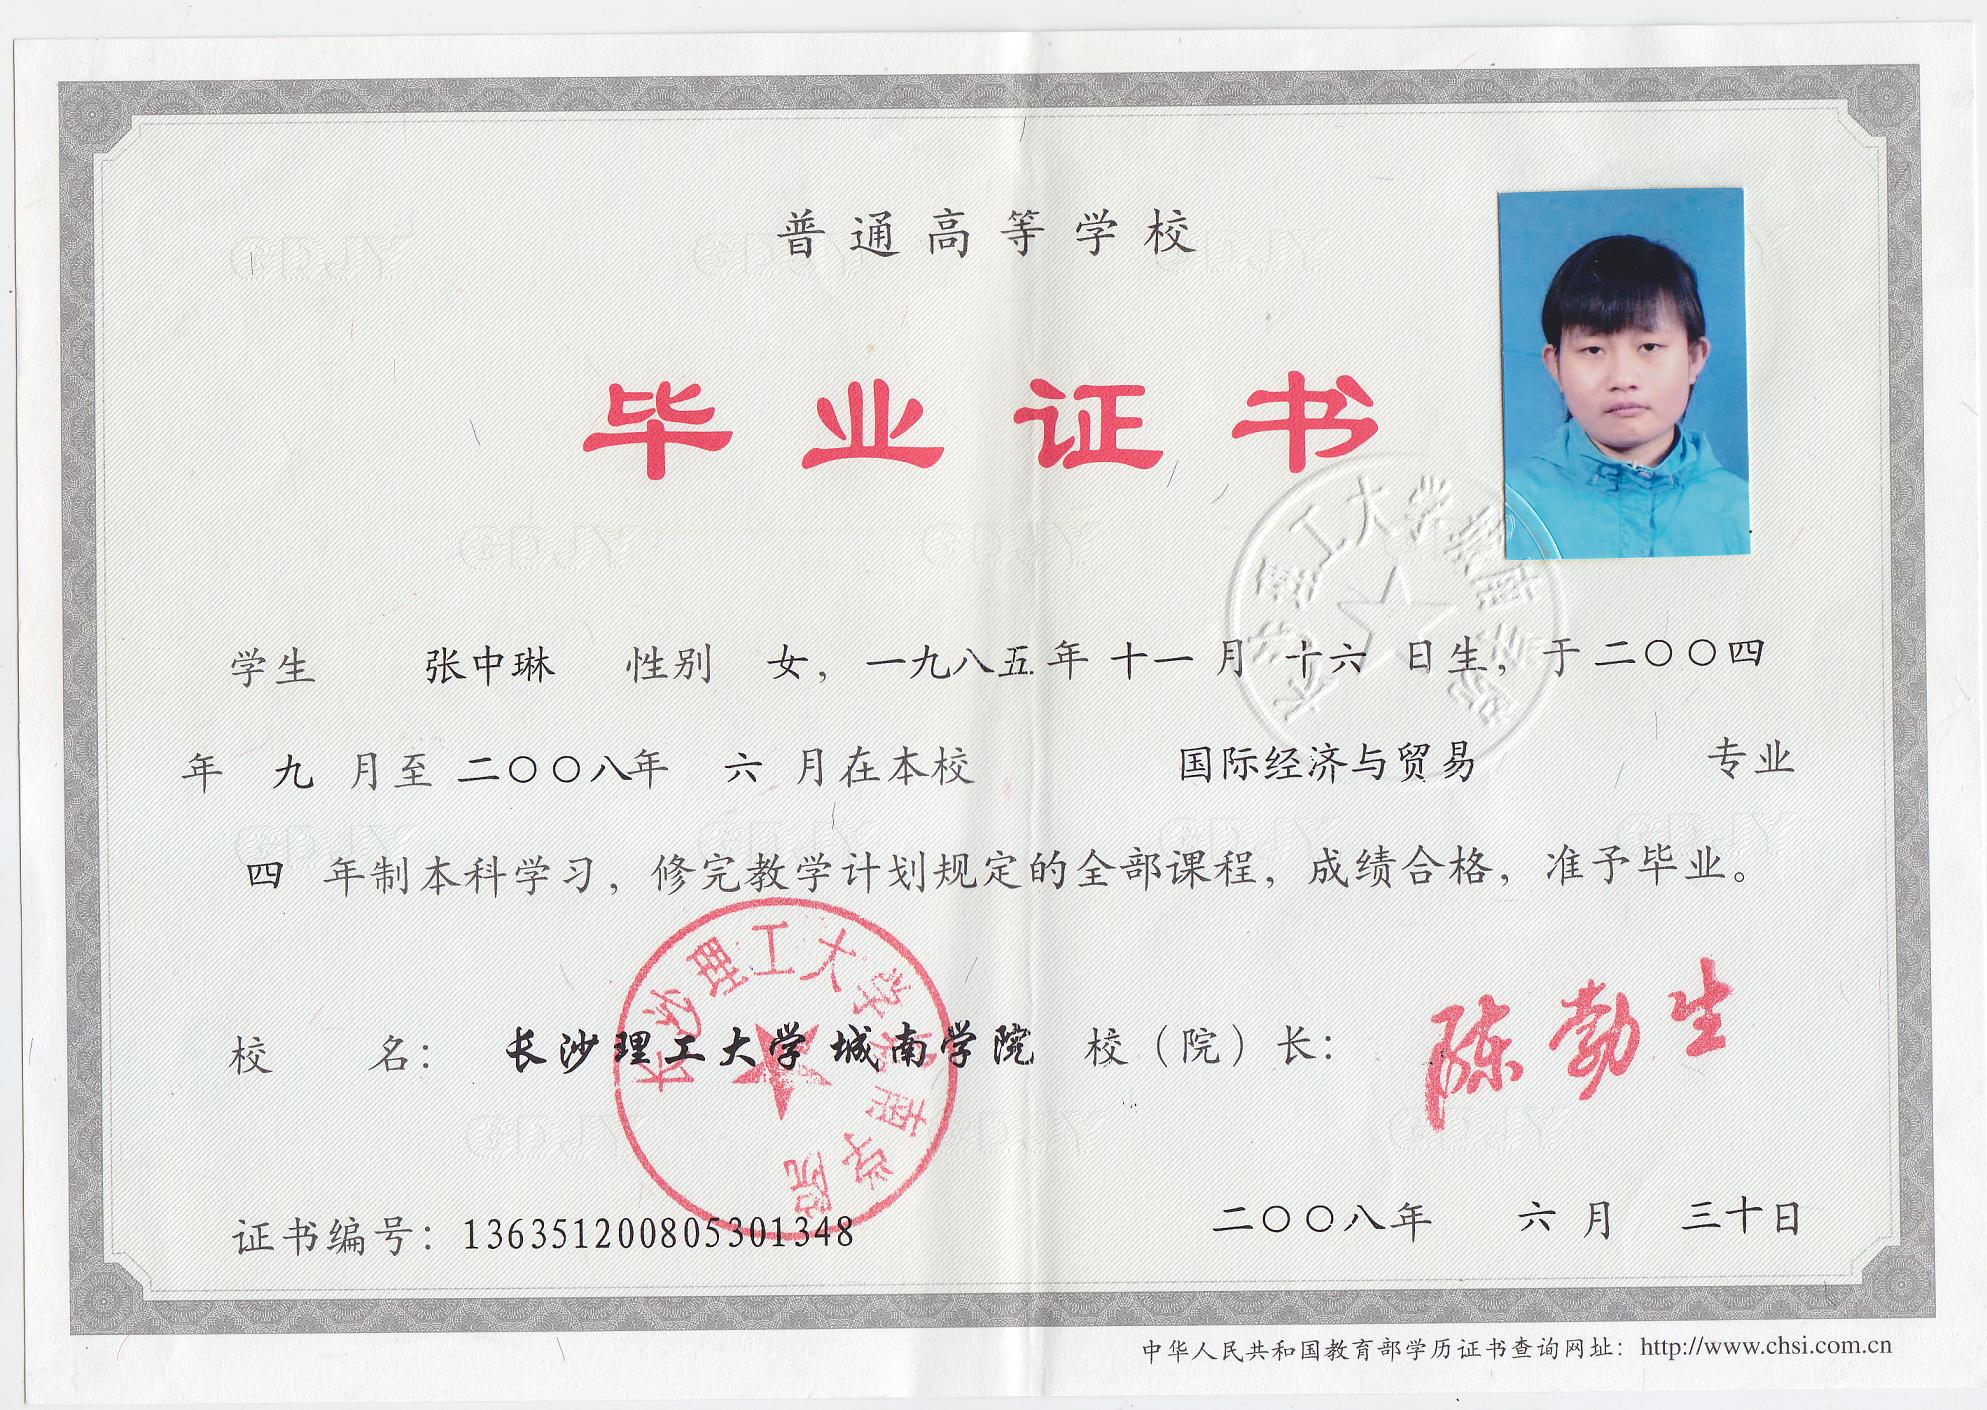 普通高等学校
毕业证书
学生 张中琳 性别 女，一九八五年十一月十六日生，于二〇〇四
年九月至二〇〇八年六月在本校 国际经济与贸易 专业
四年制本科学习，修完教学计划规定的全部课程，成绩合格，准予毕业。
长沙理工大学城南学院
校名：长沙理工大学城南学院 校（院）长：陈勃生
长沙理工大学城南学院
证书编号：136351200805301348
二〇〇八年 六月 三十日
中华人民共和国教育部学历证书查询网址：http://www.chsi.com.cn